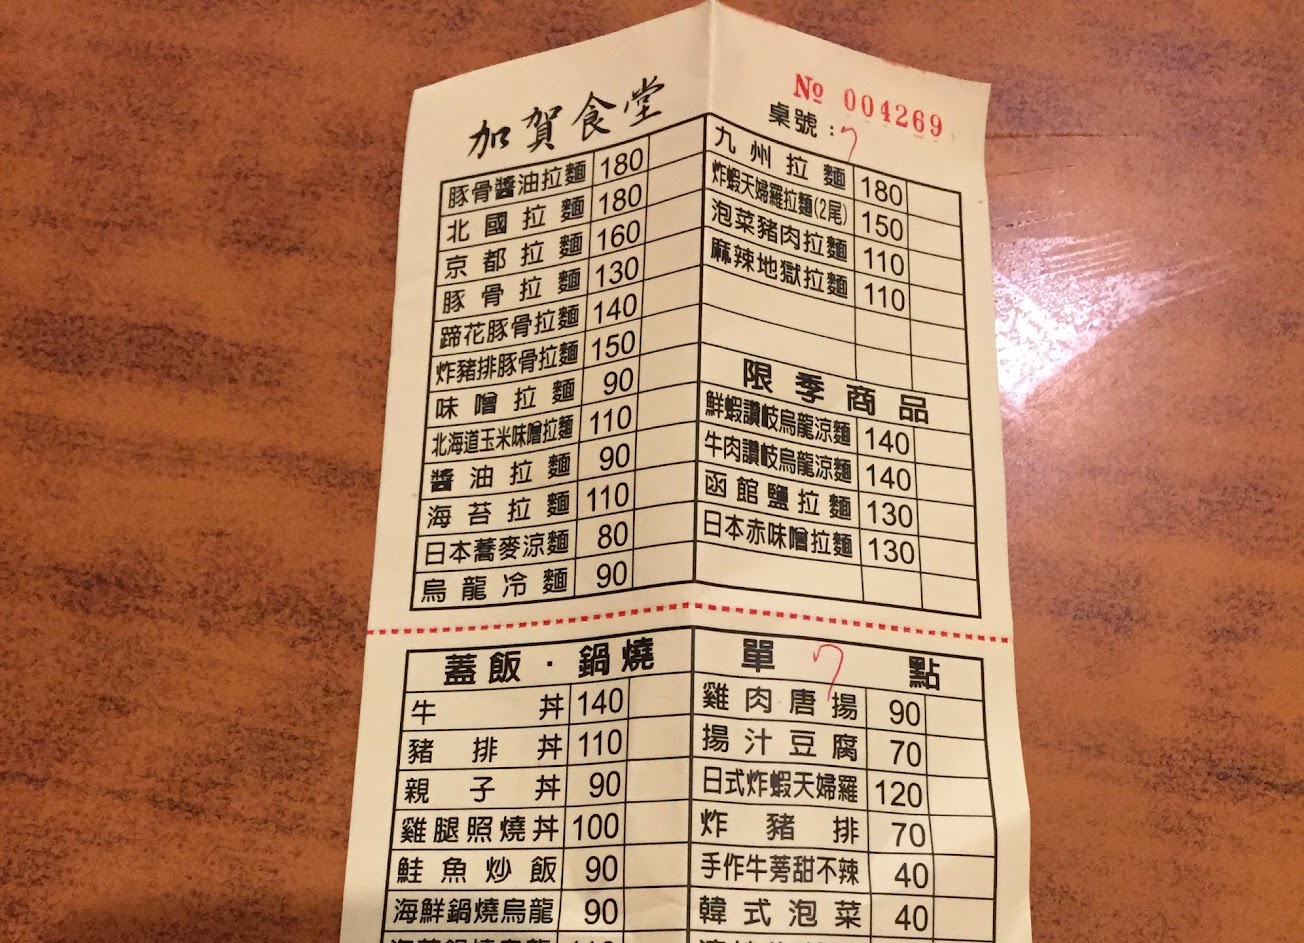 加賀食堂
№ 004269
桌號：7
豚骨醬油拉麵 180
北國拉麵 180
京都拉麵 160
豚骨拉麵 130
蹄花豚骨拉麵 140
炸豬排豚骨拉麵 150
味噌拉麵 90
北海道玉米味噌拉麵 110
醬油拉麵 90
海苔拉麵 110
日本蕎麥涼麵 80
烏龍冷麵 90
九州拉麵 180
炸蝦天婦羅拉麵(2尾) 150
泡菜豬肉拉麵 110
麻辣地獄拉麵 110
限季商品
鮮蝦讚岐烏龍涼麵 140
牛肉讚岐烏龍涼麵 140
函館鹽拉麵 130
日本赤味噌拉麵 130
蓋飯．鍋燒
牛丼 140
豬排丼 110
親子丼 90
雞腿照燒丼 100
鮭魚炒飯 90
海鮮鍋燒烏龍 90
單 7 點
雞肉唐揚 90
揚汁豆腐 70
日式炸蝦天婦羅 120
炸豬排 70
手作牛蒡甜不辣 40
韓式泡菜 40